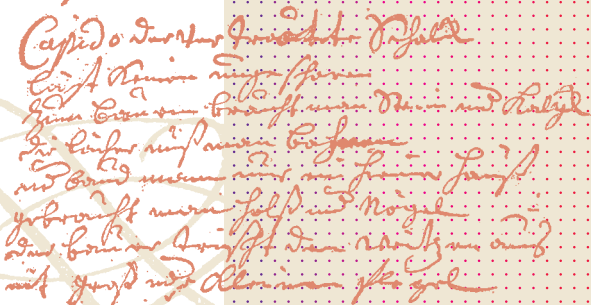 Cupido der ver trackte Schalk
läst Keinen ungeschoren
Zum bauen braucht man Stein und Kalgk
die löcher muß man bohren
und baud mann ein hauß
gebraucht man holtz und Nägel
der bauer trischt den weitzen auß
mit groß und kleinem pflegel